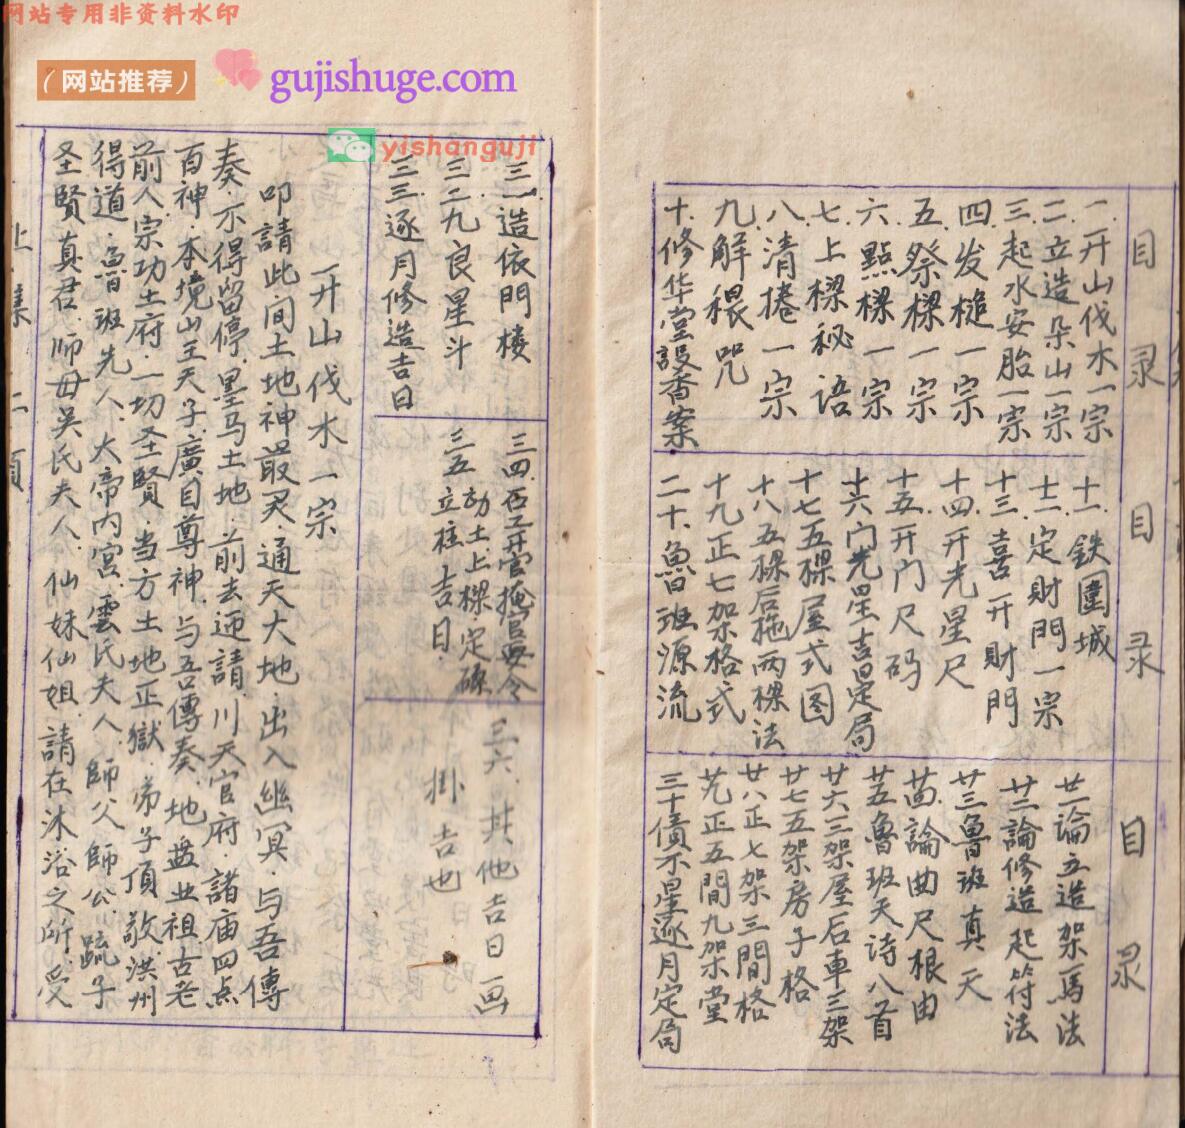 网站专用非资料水印
（网站推荐）
gujishuge.com
yishanguji
目录
一.开山伐木一宗
二.立造朵山一宗
三.起水安胎一宗
四.发槌一宗
五.祭樑一宗
六.點樑一宗
七.上樑秘语
八.清捲一宗
九.解秽咒
十.修华堂設香案
目录
十一.鉄圍城
十二.定財門一宗
十三.喜开財門
十四.开光星尺
十五.开门尺码
十六门光星吉星定局
十七五樑屋式图
十八五樑后拖两樑法
十九正七架格式
二十.魯班源流
目录
廿一論立造架馬法
廿二論修造起符法
廿三魯班真天
廿四論曲尺根由
廿五魯班天诗八首
廿六三架屋后車三架
廿七五架房子格
廿八正七架三間格
廿九正五間九架堂
三十債不星逐月定局
三一.造依門楼
三二九良星斗
三三逐月修造吉日
三四.石工开官掩官要令
三五动土上樑.定磉
立柱吉日.
三六.其他吉日画
掛吉也
一开山伐木一宗
叩請此间土地神最灵.通天大地.出入幽冥.与吾傳
奏.不得留停.黑马土地.前去迎請.川天官府.諸庙四点
百神.本境山王天子.廣目尊神.与吾傳奏.地盘业祖.古老
前人.宗功土府.一切圣賢.当方土地正獄.弟子頂敬.洪州
得道.魯班先人.大帝内宮.雲氏夫人.師父師公.蹠子
圣賢真君.師母吴氏夫人.仙妹仙姐.請在沐浴之所.受